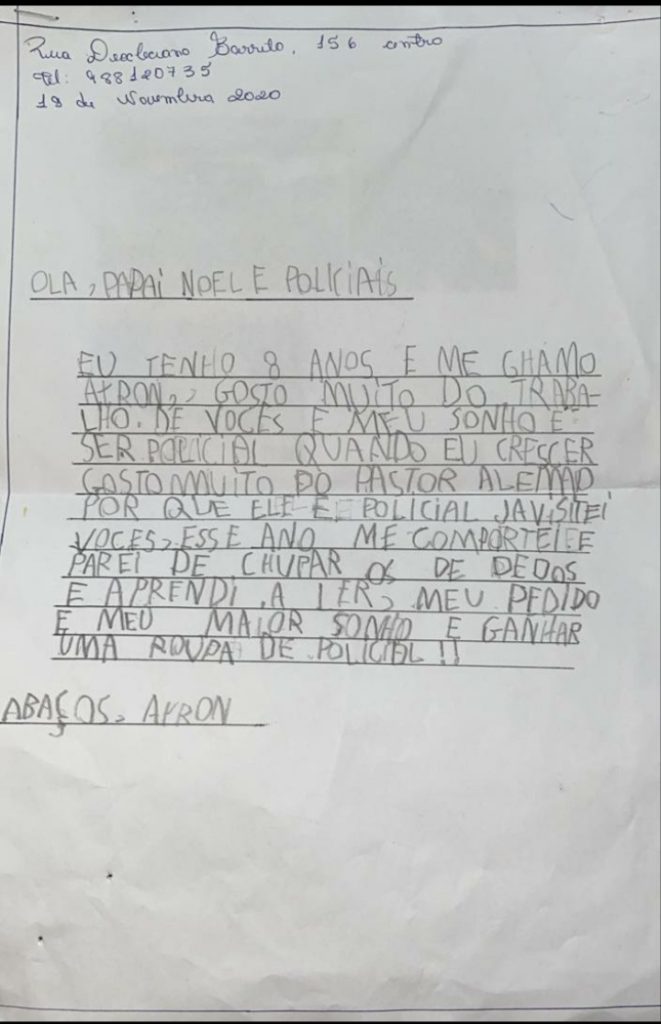 Rua Deocleciano Barrito, 156 centro
Tel: 988120735
18 de Novembro 2020
OLA, PAPAI NOEL E POLICIAIS
EU TENHO 8 ANOS E ME GHAMO
AYRON,, GOSTO MUITO DO TRABA-
LHO. DE VOCES E MEU SONHO E
SER POLICIAL QUANDO EU CRESCER
GOSTO MUITO DO PASTOR ALEMAO
POR QUE ELE E POLICIAL JA VISITEI
VOCES, ESSE ANO ME COMPORTEI E
PAREI DE CHUPAR OS DE DEDOS
E APRENDI A LER, MEU PEDIDO
E MEU MAIOR SONHO E GANHAR
UMA ROUPA DE POLICIAL !!
ABAÇOS, AYRON